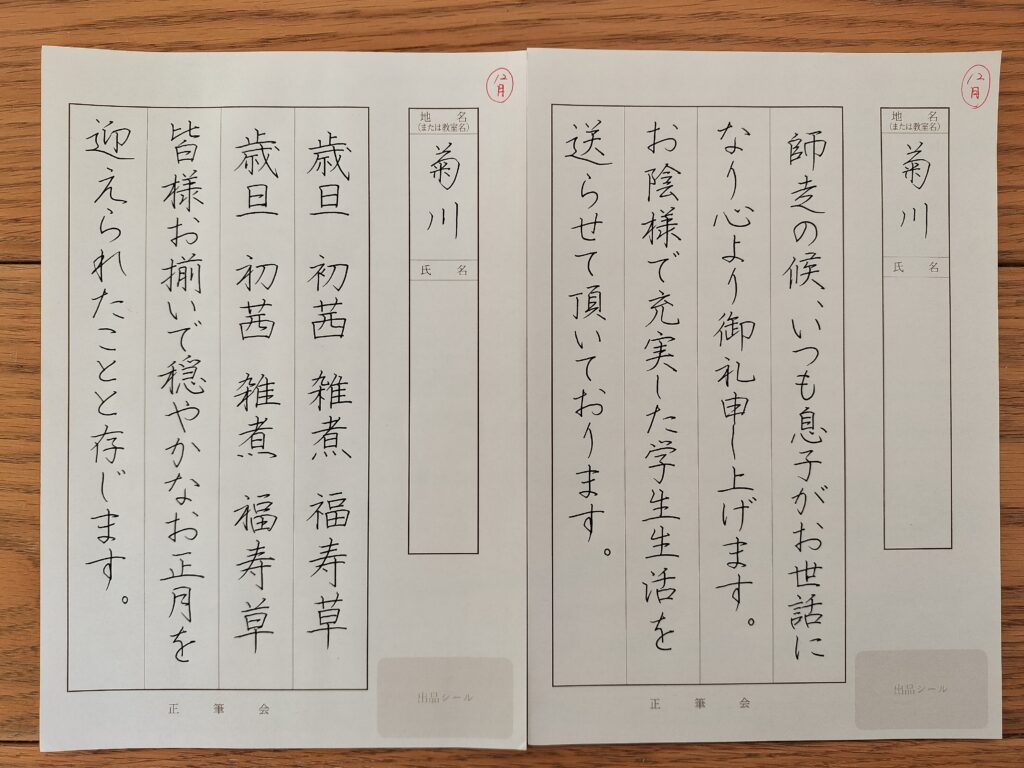 12月
地名
(または教室名)
菊川
氏名
師走の候、いつも息子がお世話に
なり心より御礼申し上げます。
お陰様で充実した学生生活を
送らせて頂いております。
出品シール
正筆会
12月
地名
(または教室名)
菊川
氏名
歳旦 初茜 雑煮 福寿草
歳旦 初茜 雑煮 福寿草
皆様お揃いで穏やかなお正月を
迎えられたことと存じます。
出品シール
正筆会